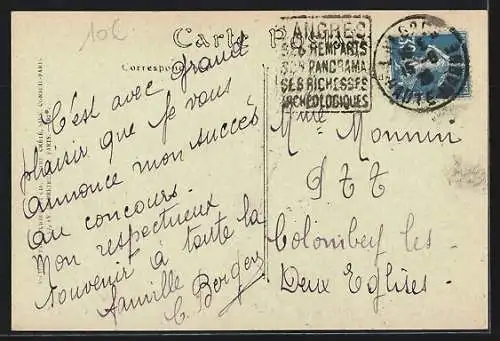 10€
Carte Po
Correspondance
LANGRES
SES REMPARTS
SON PANORAMA
SES RICHESSES
ARCHÉOLOGIQUES
LANGRES
HAUTE MARNE
C'est avec grand
plaisir que je vous
annonce mon succès
au concours.
Mon respectueux
souvenir à toute la
famille
C. Berger
Mme Monnin
PTT
Colombey les
Deux Eglises